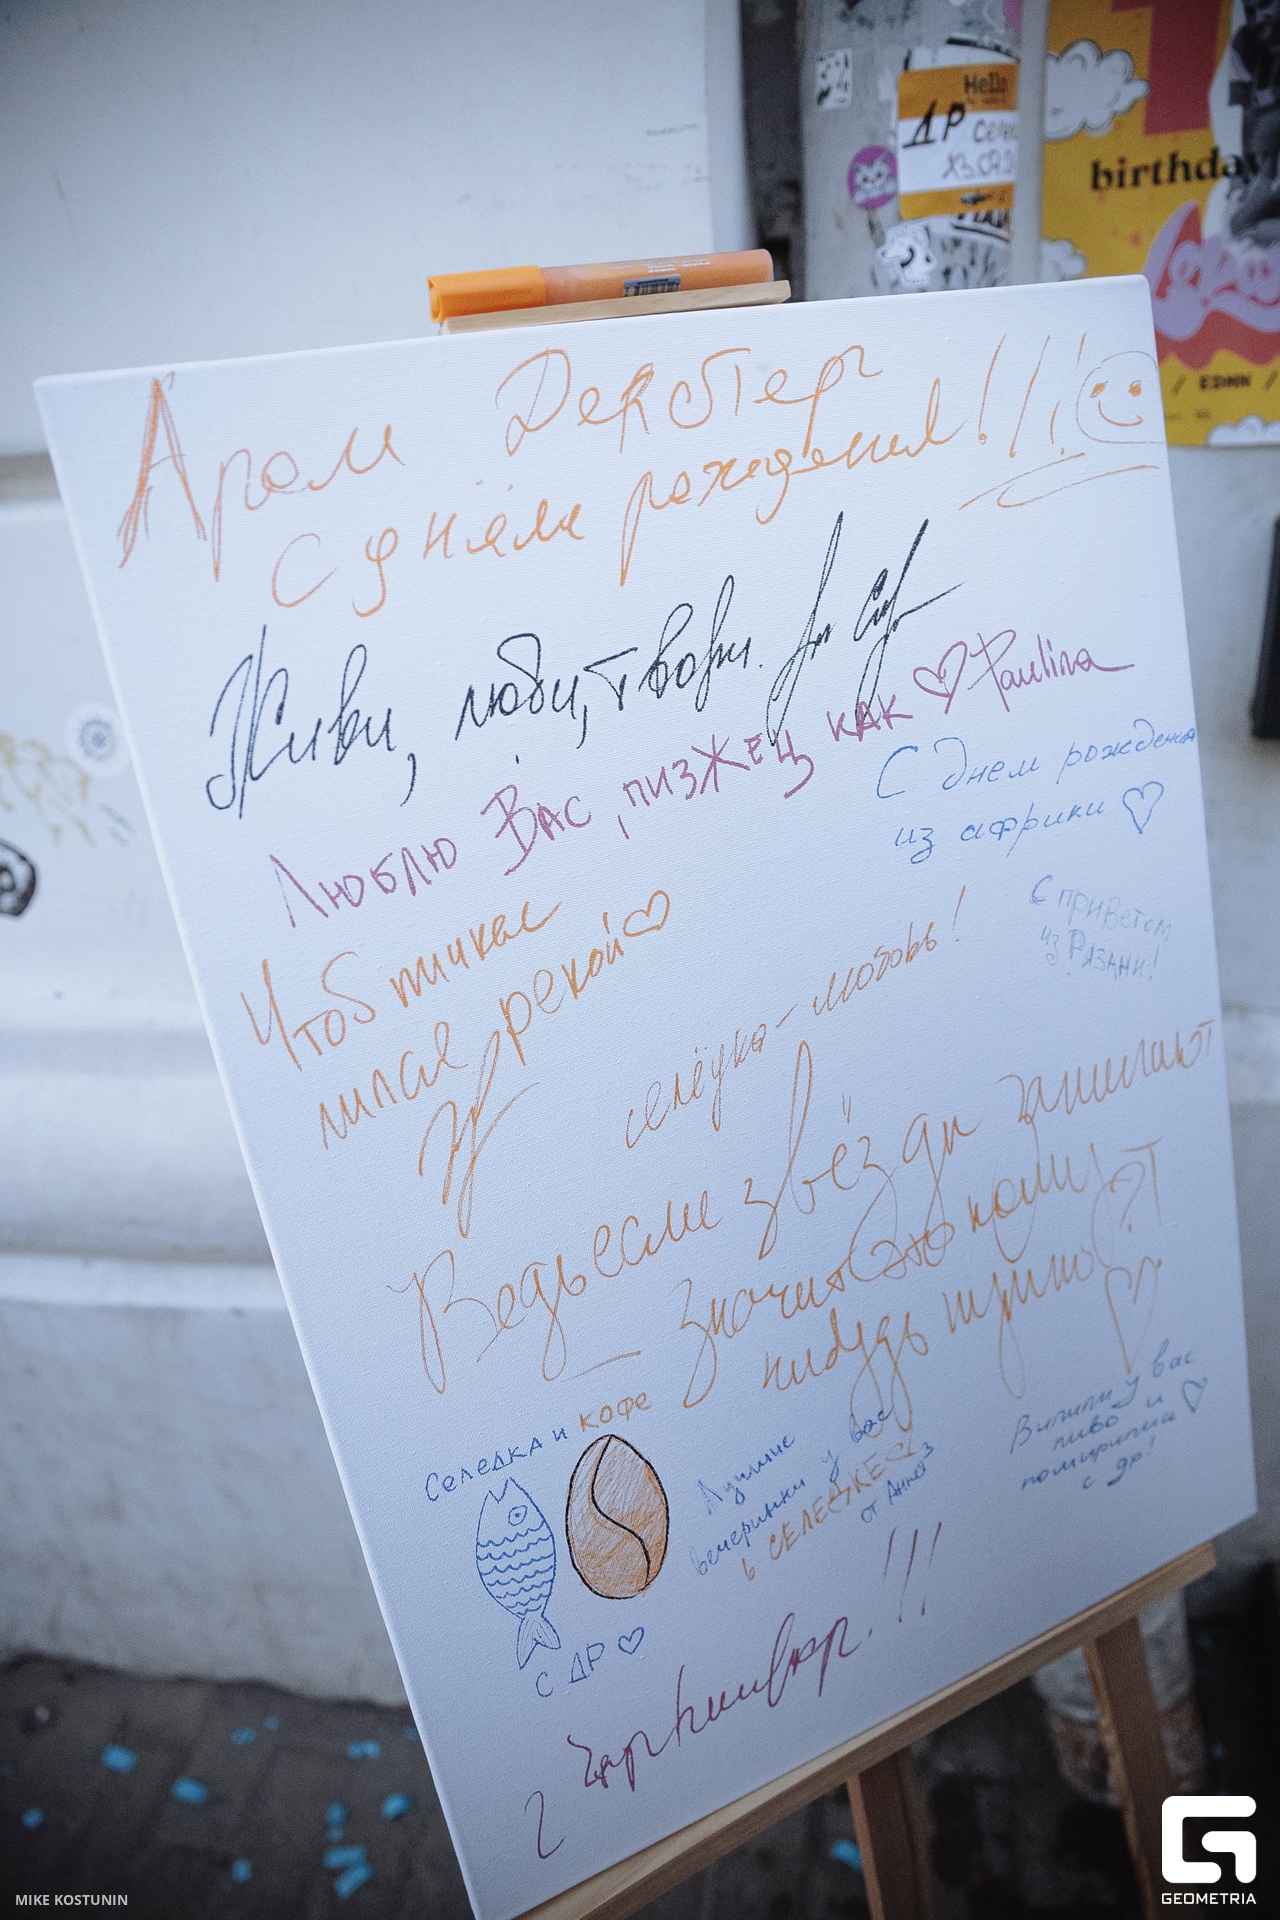 Hello
ДР
birthday
/ EDMN /
Арам Декстер
с днём рождения!!!
Живи, люби, твори.
Люблю Вас, пизжец как ♡ Paulina
С Днем рождения
из африки ♡
Чтоб
лился рекой ♡
С приветом
из Рязани!
селёдка - любовь!
Ведь если звёзды зажигают
— значит это кому
нибудь нужно?
Селедка и кофе
С ДР ♡
Лучшие
вечеринки у вас
в СЕЛЕДКЕ
от Анны
у вас
пиво и
с др!
!!!
MIKE KOSTUNIN
GEOMETRIA